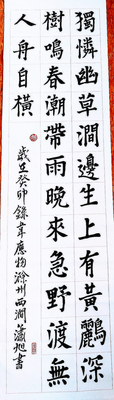 獨憐幽草澗邊生上有黃鸝深
樹鳴春潮帶雨晚來急野渡無
人舟自橫
歲在癸卯錄韋應物滁州西澗瀟旭書